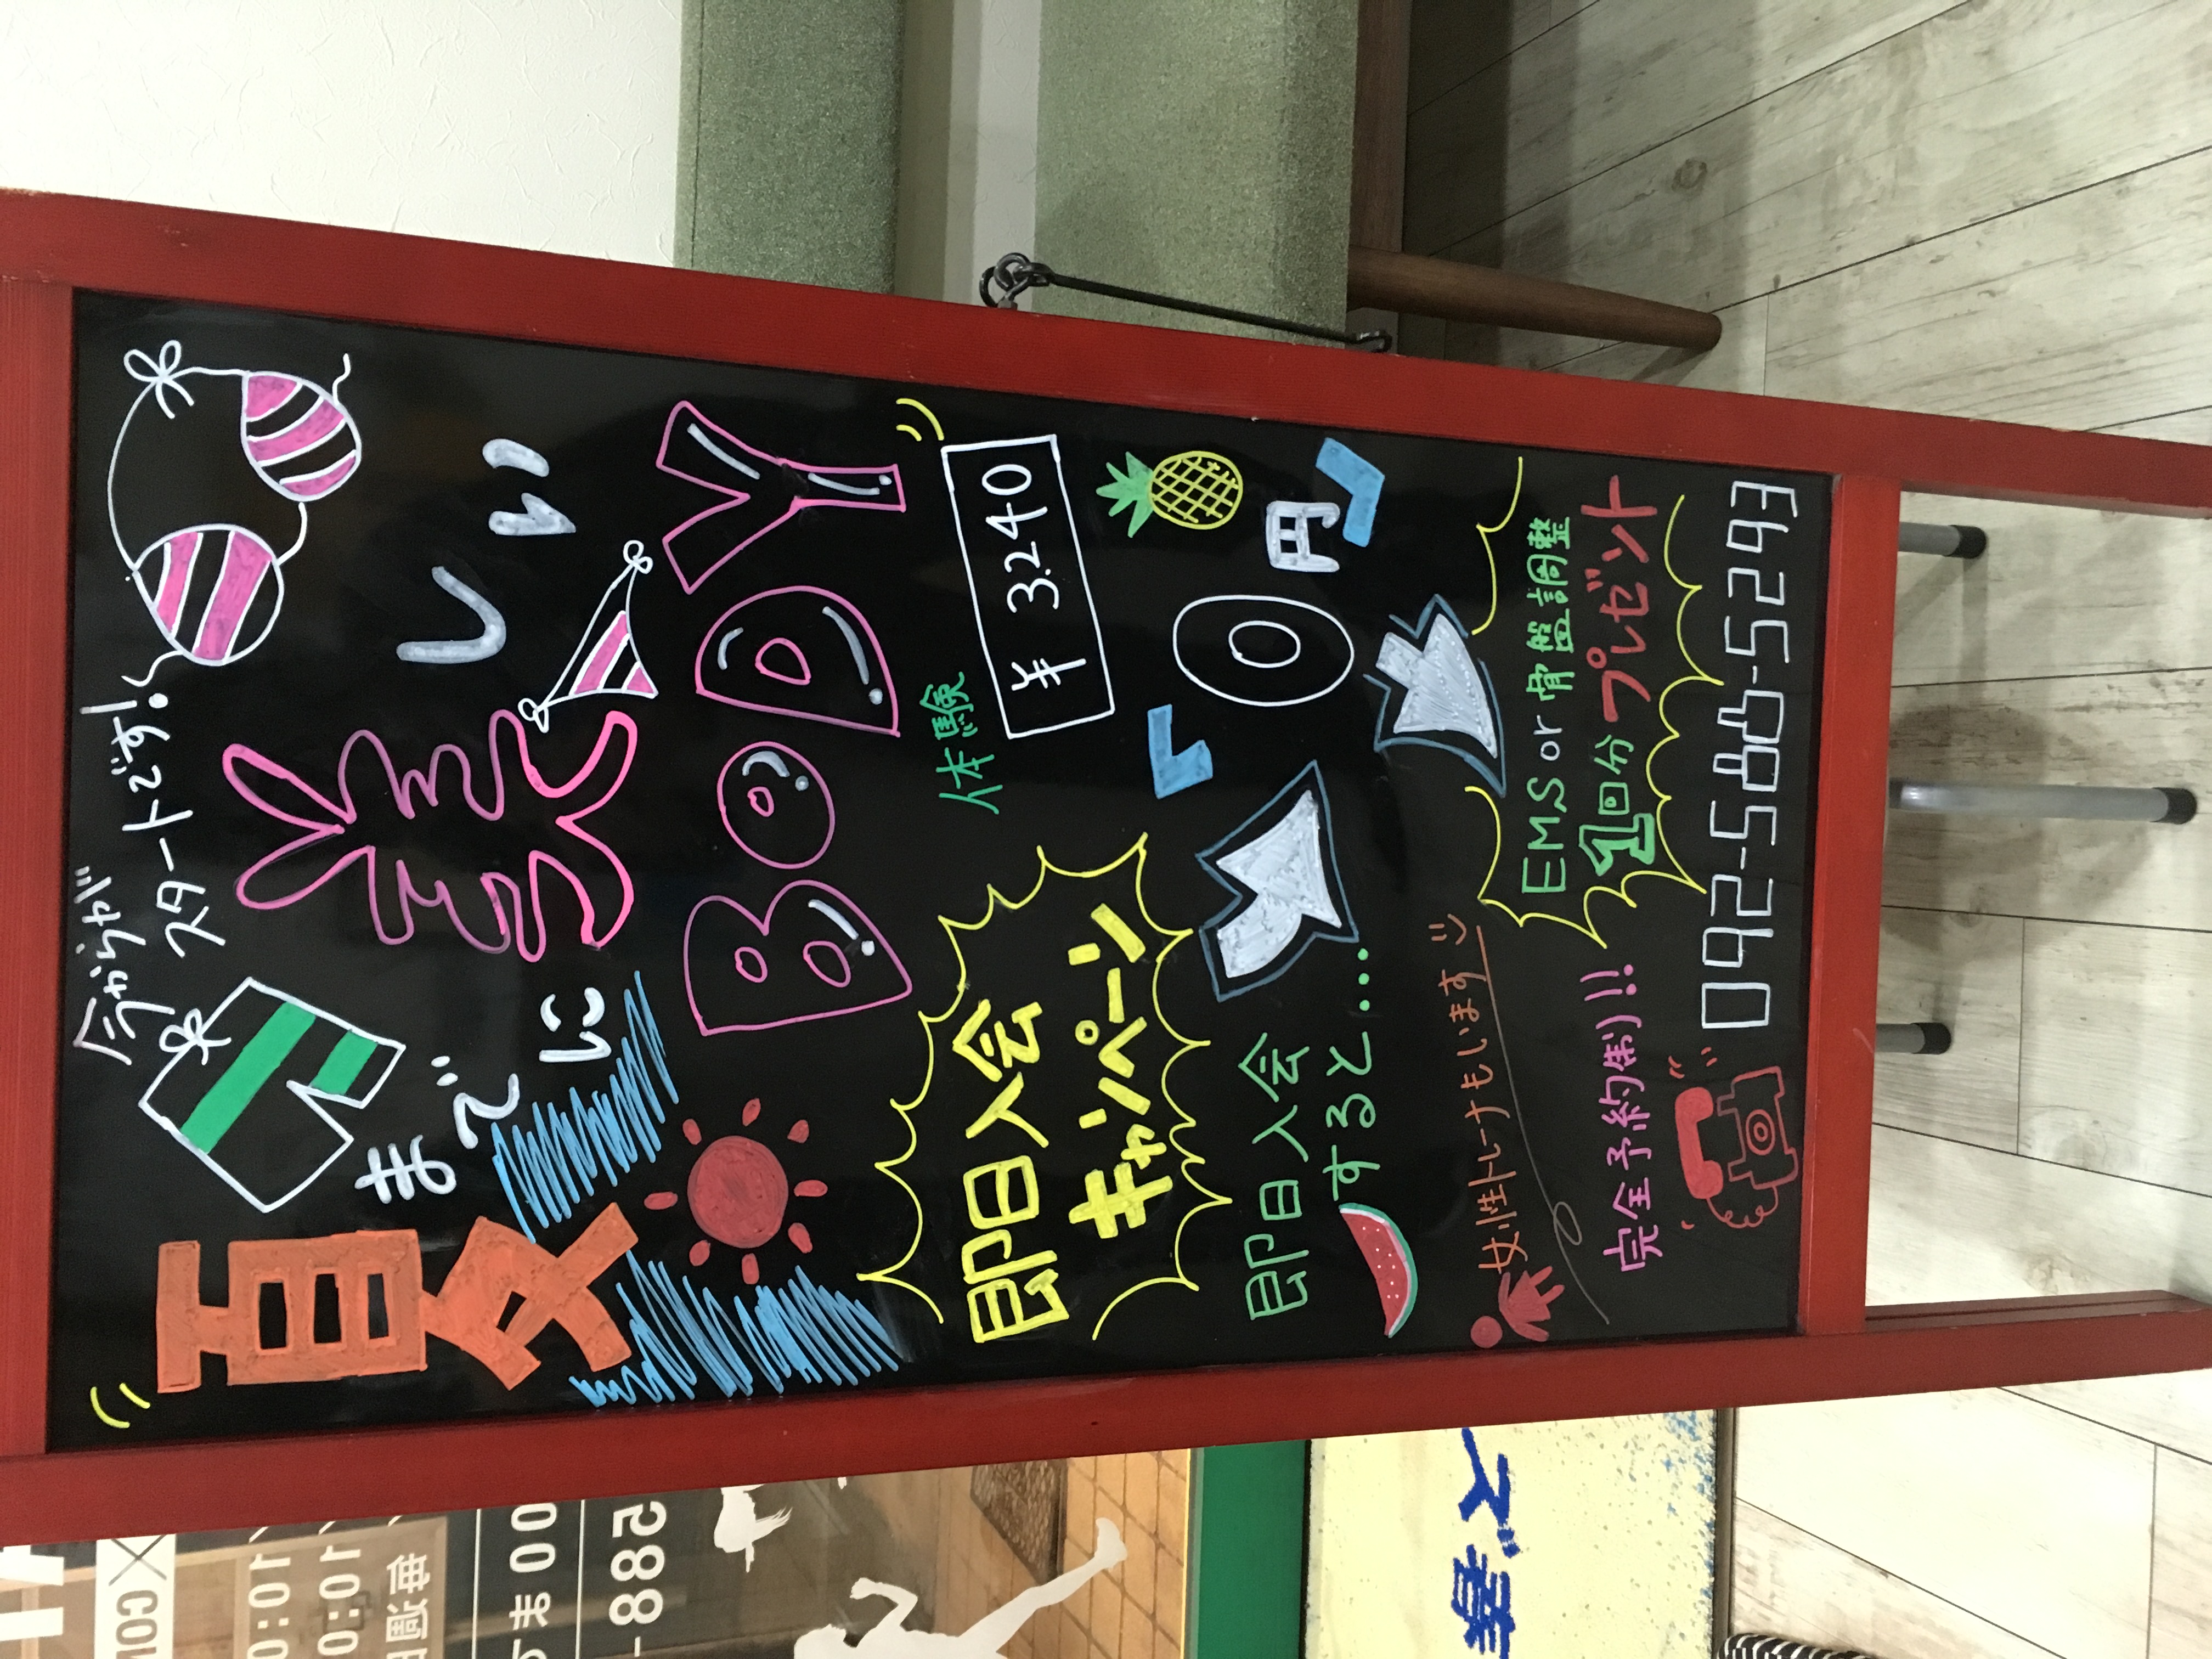 今からが
スタートです!
夏までに
美しい
BODY
即日入会
キャンペーン
体験
¥3,240
0円
即日入会
すると....
女性トレーナもいます
EMS or 骨盤調整
1回分プレゼント
完全予約制!!
092-588-5293
ズ募